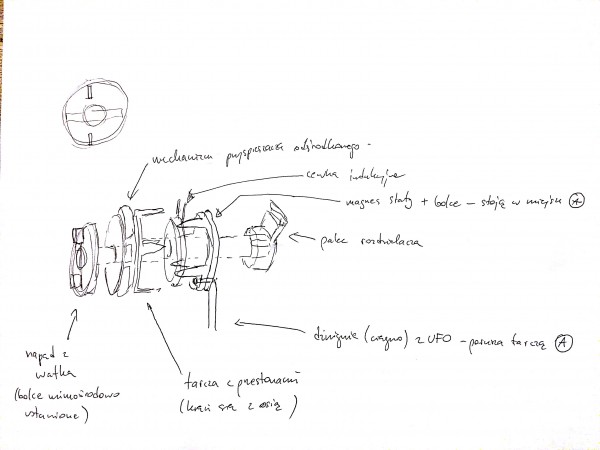 mechanizm przyspieszacza odśrodkowego -
cewka indukcyjna
magnes stały + bolce - stoją w miejscu A
palec rozdzielacza
dźwignie (cięgno) z UFO - porusza tarczą A
napęd z
wałka
(bolce mimośrodowo
ustawione)
tarcza z przesłonami
(kręci się z osią)